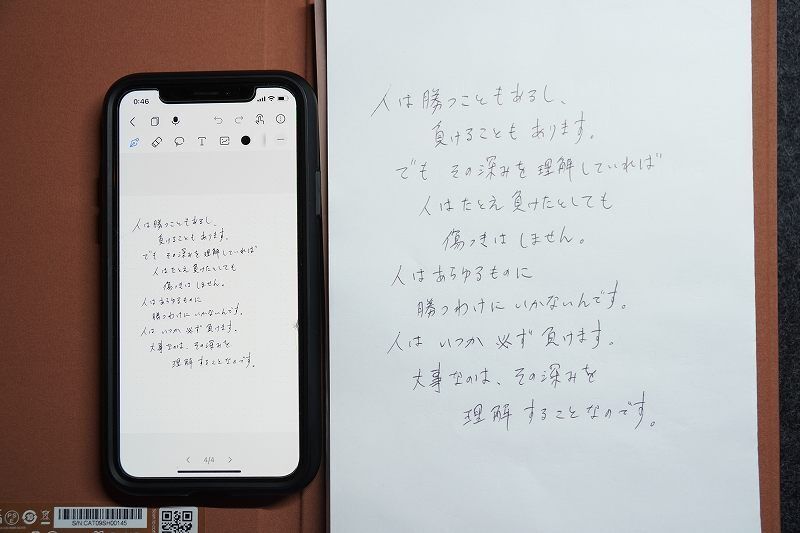 0:46
人は勝つこともあるし、
負けることもあります。
でもその深みを理解していれば
人はたとえ負けたとしても
傷つきはしません。
人はあらゆるものに
勝つわけにいかないんです。
人はいつか必ず負けます。
大事なのは、その深みを
理解することなのです。
4/4
S/N CAT09SH00145
人は勝つこともあるし、
負けることもあります。
でもその深みを理解していれば
人はたとえ負けたとしても
傷つきはしません。
人はあらゆるものに
勝つわけにいかないんです。
人はいつか必ず負けます。
大事なのは、その深みを
理解することなのです。